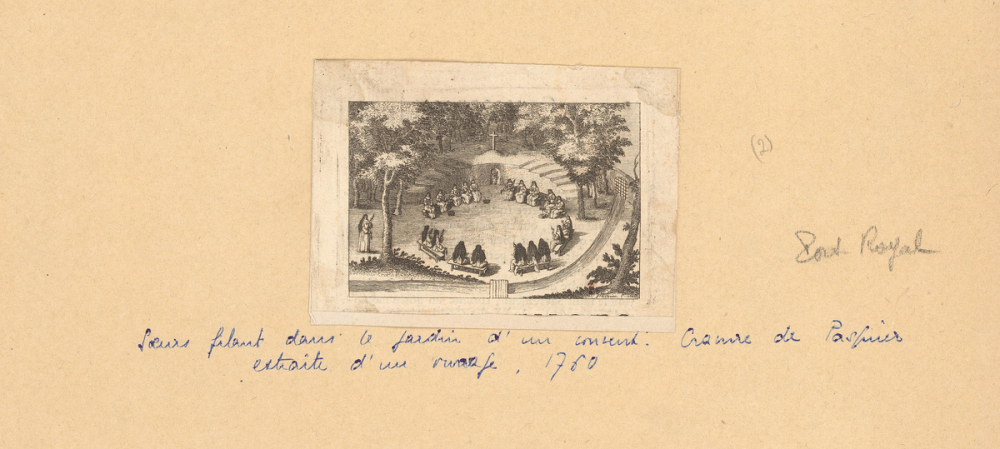 (2)
Port Royal
Sœurs filant dans le jardin d'un couvent. Gravure de Pasquier
extraite d'un ouvrage, 1760